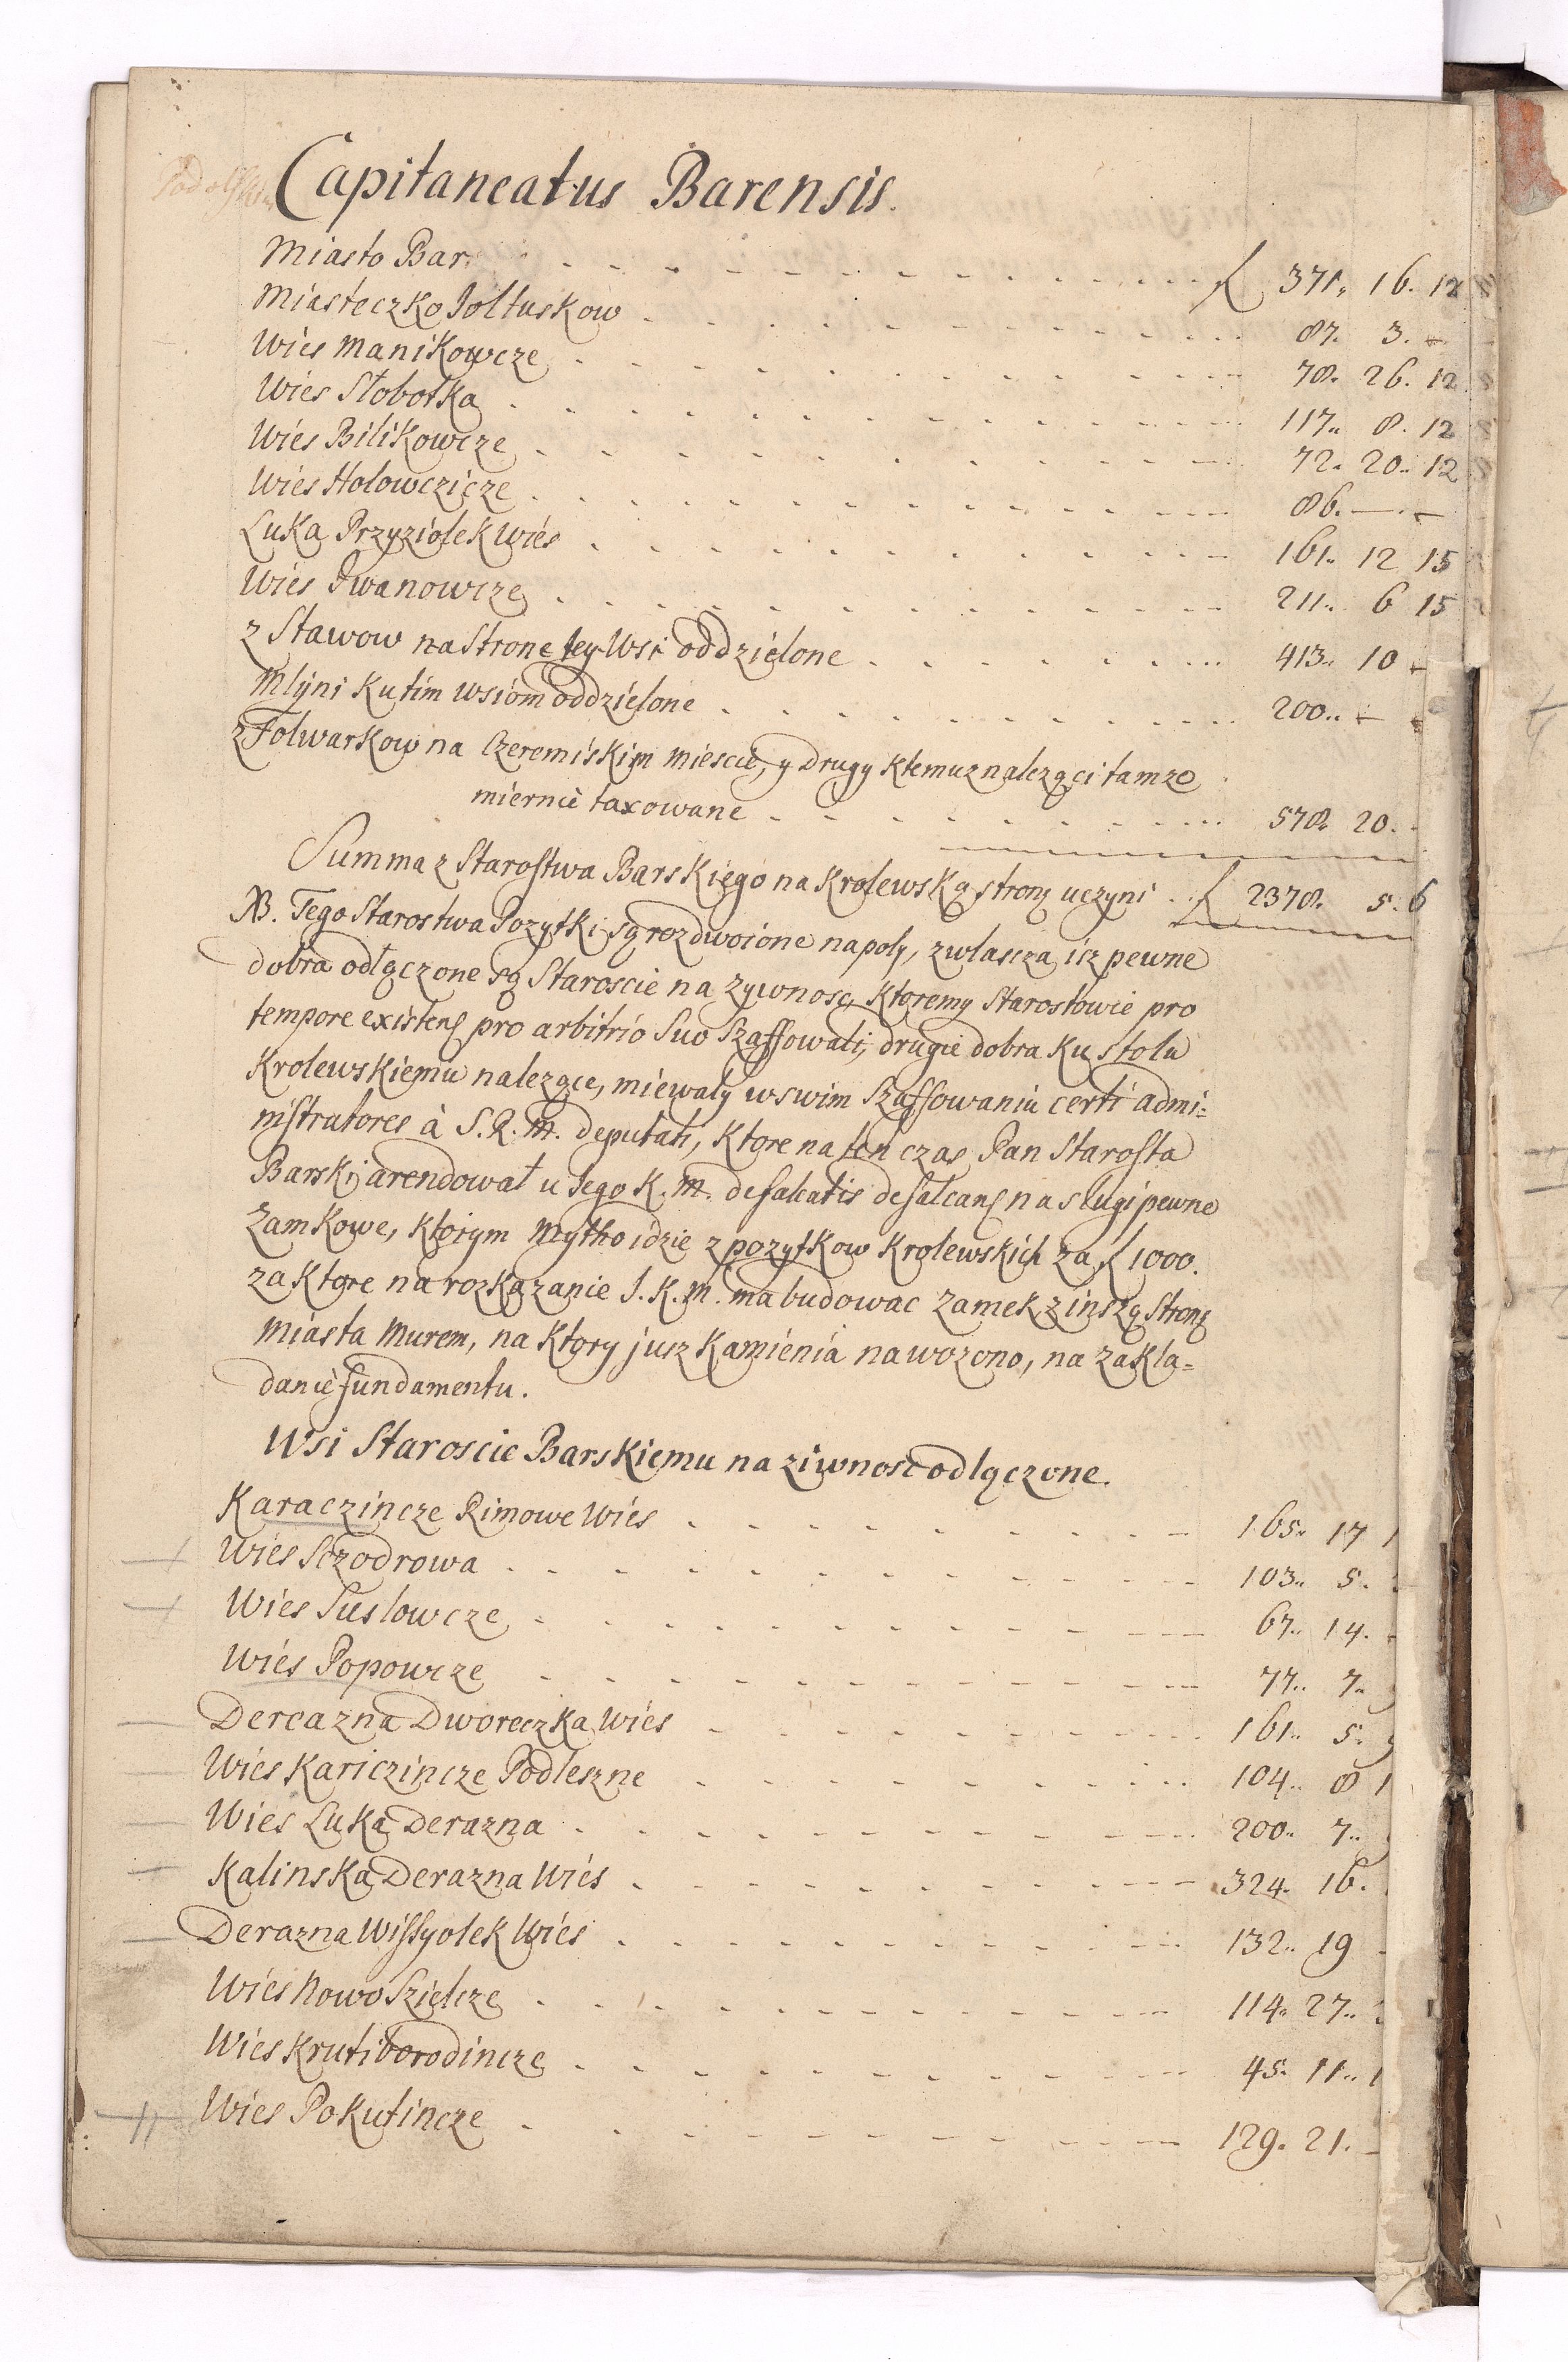 Capitaneatus Barensis.
Miasto Bar. f 371, 16. 12
Miasteczko Joltuskow 87. 3. –
Wies Manikowcze 78. 26. 12
Wies Słobotka 117. 8. 12
Wies Bilikowcze 72. 20. 12
Wies Holowczicze 86. — . –
Luka Przyziolek Wies 161. 12 15
Wies Iwanowcze 211. 6 15
z Stawow na Strone tey Wsi oddzielone 413. 10 –
Mlyni ku tim wsiom oddzielone 200. –
z Folwarkow na Czeremiskim miescie, y drugy ktemuz nalezące tamze
miernie taxowane 578. 20.
Summa z Starostwa Barskiego na Krolewską stronę uczyni f 2378. 5. 6
NB. Tego Starostwa Pozytki są rozdwoione napoly, zwlascza isz pewne
dobra odłączone są Staroscie na zywnosc, ktoremy Starostowie pro
tempore existens pro arbitrio suo szaffowali, drugie dobra ku stolu
Krolewskiemu nalezące, miewaly w swim szaffowaniu certi admi=
nistratores à S. R. M. deputati, ktore na ten czas Pan Starosta
Barski arendował u Jego K. M. defalcatis defalcans na slugi pewne
Zamkowe, ktorym Mytho idzie z pozytkow Krolewskich za f 1000.
za ktore na rozkazanie J. K. M. ma budowac Zamek z inszą stronę
Miasta Murem, na ktory jusz Kamienia nawozono, na zakla=
danie fundamentu.
Wsi Staroscie Barskiemu na ziwnosc odlączone.
Karaczincze Rimowe Wies 165. 17 1
Wies Sczodrowa 103. 5.
Wies Suslowcze 67. 14.
Wies Popowcze 77. 7.
Dercazna Dworeczka Wies 161. 5. 9
Wies Kariczincze Podleszne 104. 8 1
Wies Luka Derazna 200. 7.
Kalinska Derazna Wies 324. 16.
Derazna Wissyolek Wies 132. 19
Wies Nowo Szielcze 114. 27.
Wies Krutiborodincze 45. 11. 1
Wies Pokutincze 129. 21. –